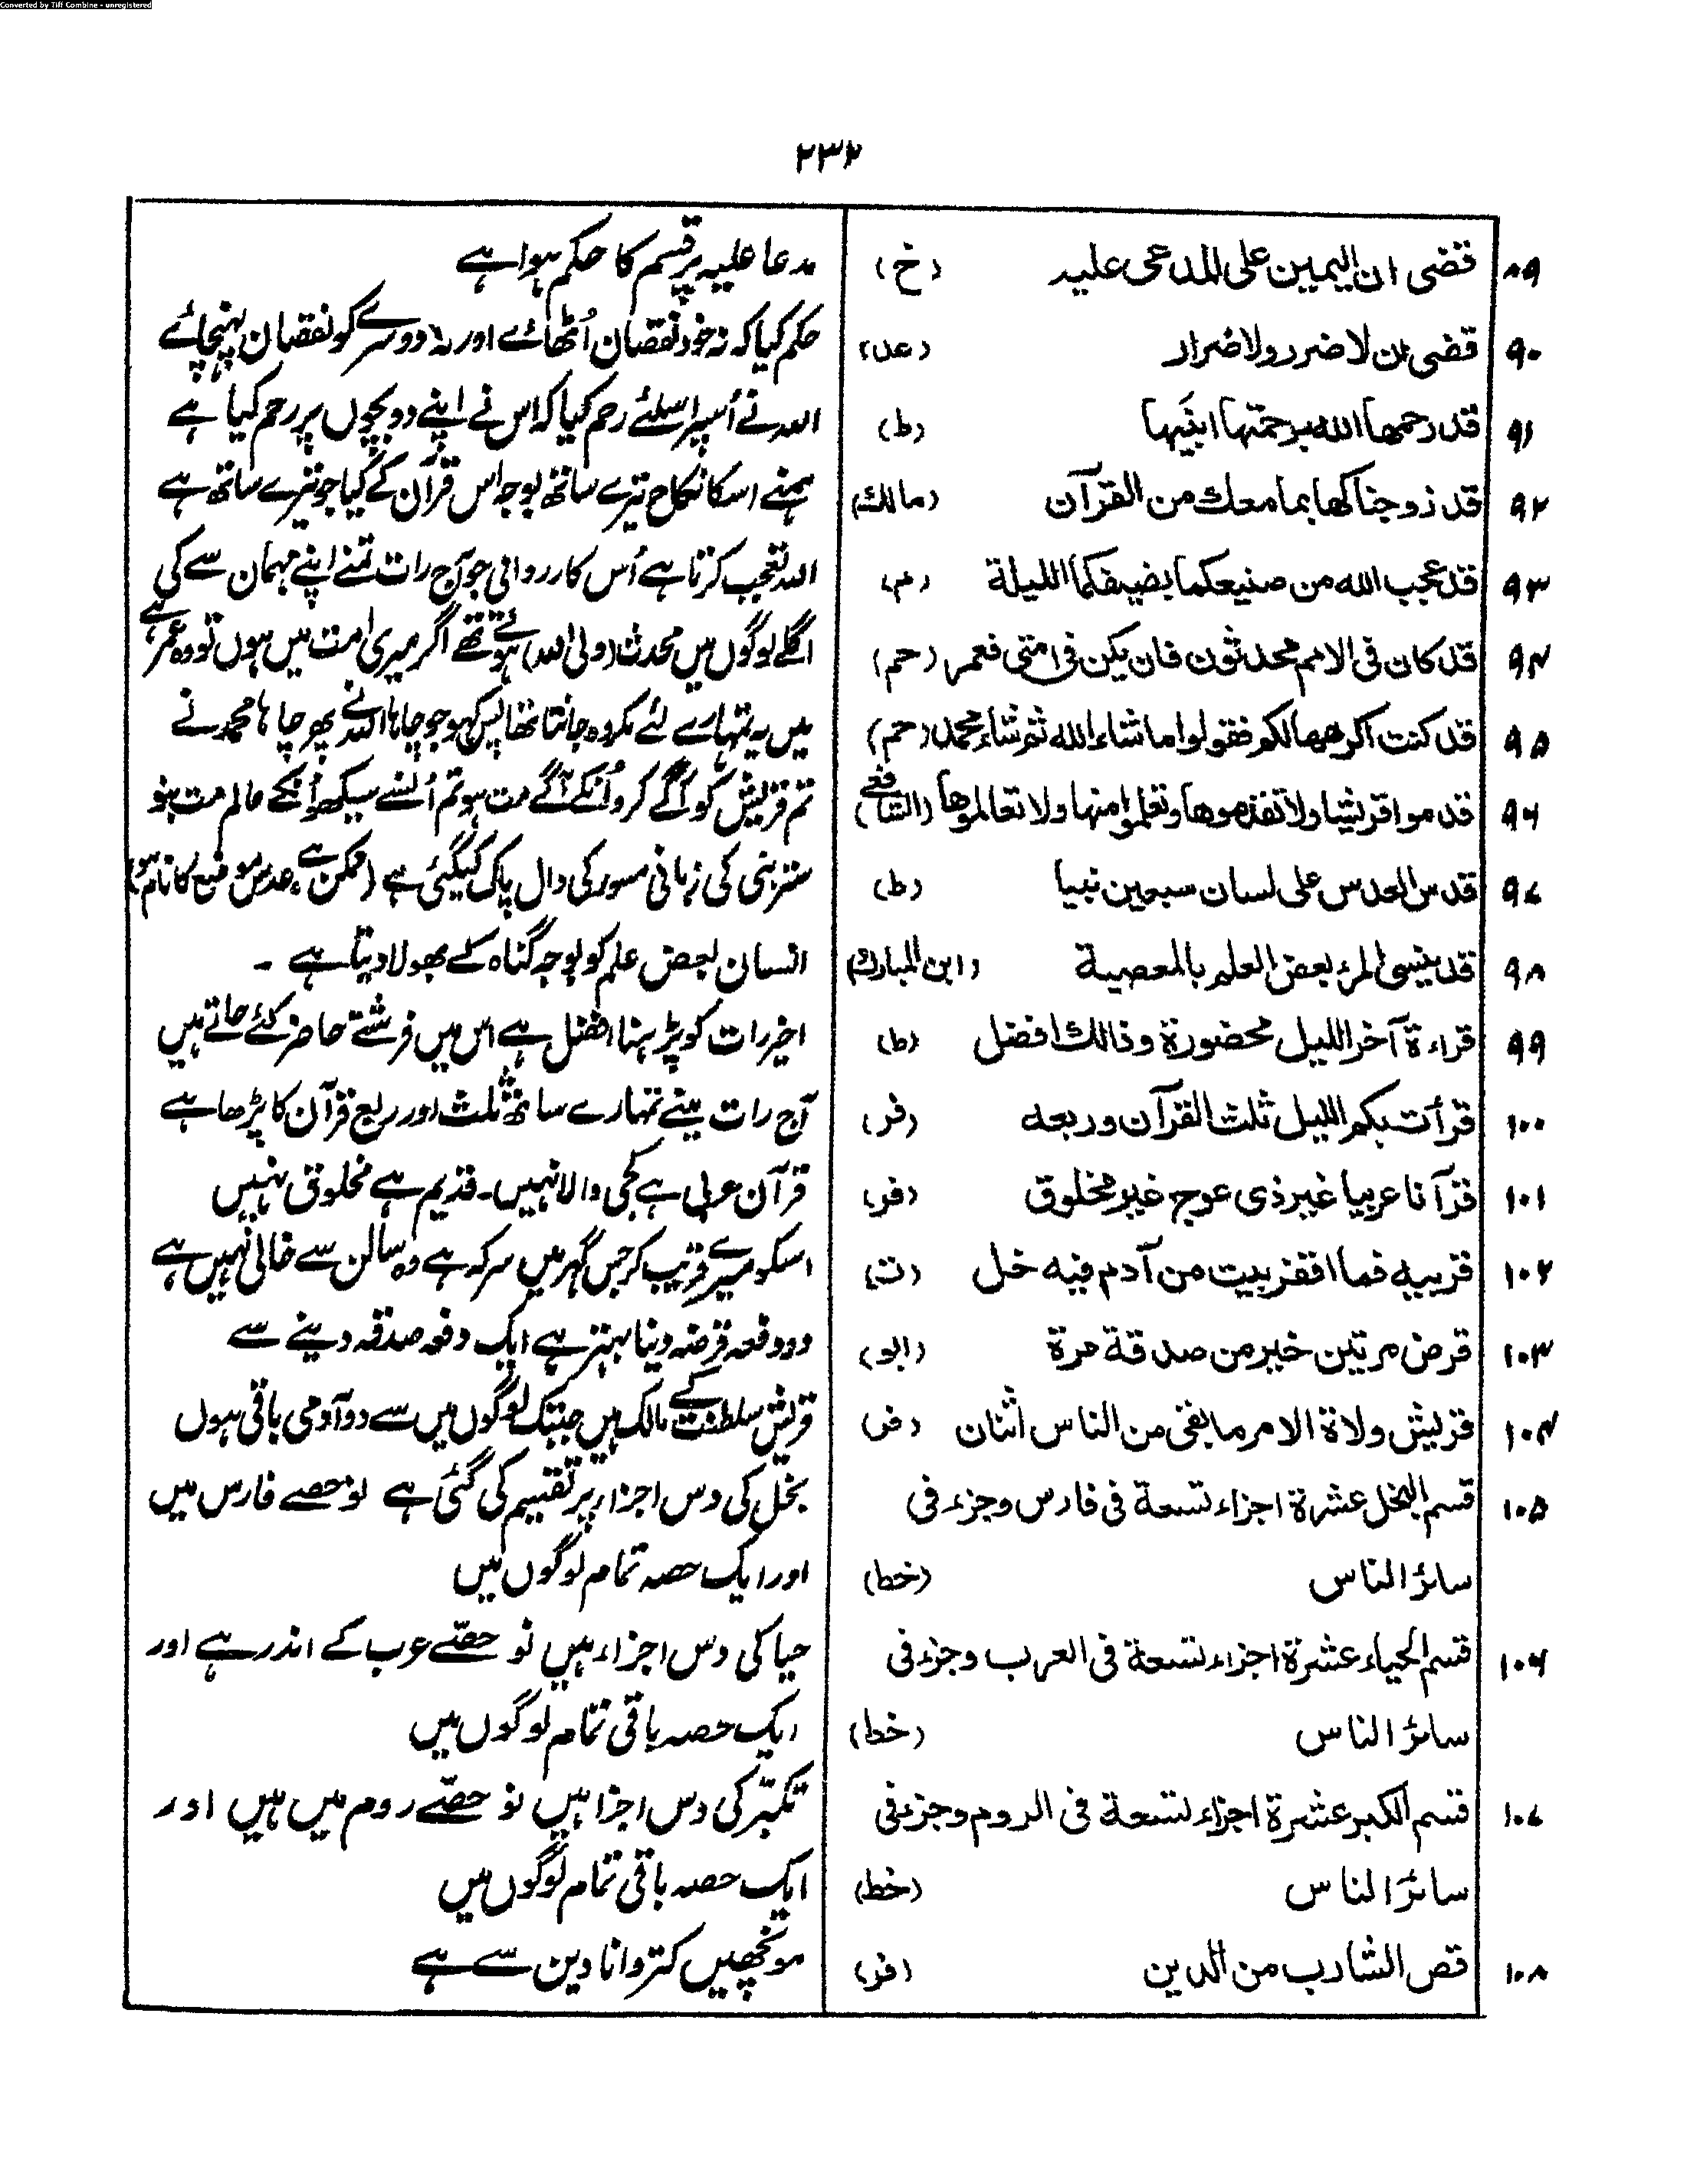 Converted by Tiff Combine - unregistered
۲۳۲
۸۹ قضی ان الیمین علی المدعی علیہ (خ) مدعا علیہ پر قسم کا حکم ہوا ہے
۹۰ قضی بان لا ضرر ولا ضرار (عد) حکم کیا کہ نہ خود نقصان اُٹھائے اور نہ دوسرے کو نقصان پہنچائے
۹۱ قد رحمھا اللہ برحمتھا ابنیھا (ط) اللہ نے اُسپر اسلئے رحم کیا کہ اس نے اپنے دو بچوں پر رحم کیا ہے
۹۲ قد زوجناکھا بما معك من القرآن (مالك) ہمنے اسکا نکاح تیرے ساتھ بوجہ اس قرآن کے کیا جو تیرے ساتھ ہے
۹۳ قد عجب اللہ من صنیعکما بضیفکما اللیلة (م) اللہ تعجب کرتا ہے اُس کارروائی جو آج رات تمنے اپنے مہمان سے کی
۹۴ قد کان فی الامم محدثون فان یکن فی امتی فعمر (حم) اگلے لوگوں میں محدث (ولی اللہ) ہوتے تھے اگر میری امت میں ہوں تو وہ عمر ہے
۹۵ قد کنت اکرھھا لکم فقولوا ما شاء اللہ ثم شاء محمد (حم) میں یہ تمہارے لئے مکروہ جانتا تھا پس کہو جو چاہا اللہ نے پھر چاہا محمد نے
۹۶ قدموا قریشا ولا تقدموھا وتعلموا منھا ولا تعالموھا (الشافعی) تم قریش کو آگے کرو اُنکے آگے مت ہو تم اُنسے سیکھو اُنکے عالم مت بنو
۹۷ قدس العدس علی لسان سبعین نبیا (ط) ستر نبی کی زبانی مسور کی دال پاک کیگئی ہے (ممکن ہے عدس موضع کا نام ہو)
۹۸ قد ینسی المرء بعض العلم بالمعصیة (ابن المبارك) انسان بعض علم کو بوجہ گناہ کے بھولا دیتا ہے ۔
۹۹ قراءة آخر اللیل محضورة وذالك افضل (ط) اخیر رات کو پڑہنا افضل ہے اس میں فرشتے حاضر کئے جاتے ہیں
۱۰۰ قرأت بکم اللیل ثلث القرآن وربعه (فر) آج رات مینے تمہارے ساتھ ثلث اور ربع قرآن کا پڑھا ہے
۱۰۱ قرآنا عربیا غیر ذی عوج غیر مخلوق (فر) قرآن عربی ہے کجی والا نہیں۔ قدیم ہے مخلوق نہیں
۱۰۲ قربیه فما اقفر بیت من آدم فیه خل (ت) اسکو میرے قریب کر جس گہر میں سرکہ ہے وہ سالن سے خالی نہیں ہے
۱۰۳ قرض مرتین خیر من صدقة مرة (ابو) دو دفعہ قرضہ دینا بہتر ہے ایک دفعہ صدقہ دینے سے
۱۰۴ قریش ولاة الامر ما بقی من الناس اثنان (ض) قریش سلطنت کے مالک ہیں جبتک لوگوں میں سے دو آدمی باقی ہوں
۱۰۵ قسم البخل عشرة اجزاء تسعة فی فارس وجزء فی بخل کی دس اجزاء پر تقسیم کی گئی ہے نو حصے فارس میں
سائر الناس (خط) اور ایک حصہ تمام لوگوں میں
۱۰۶ قسم الحیاء عشرة اجزاء تسعة فی العرب وجزء فی حیا کی دس اجزاء ہیں نو حصّے عرب کے اندر ہے اور
سائر الناس (خط) ایک حصہ باقی تمام لوگوں میں
۱۰۷ قسم الکبر عشرة اجزاء تسعة فی الروم وجزء فی تکبّر کی دس اجزا ہیں نو حصّے روم میں ہیں اور
سائر الناس (خط) ایک حصہ باقی تمام لوگوں میں
۱۰۸ قص الشارب من الدین (فر) مونچھیں کتروانا دین سے ہے